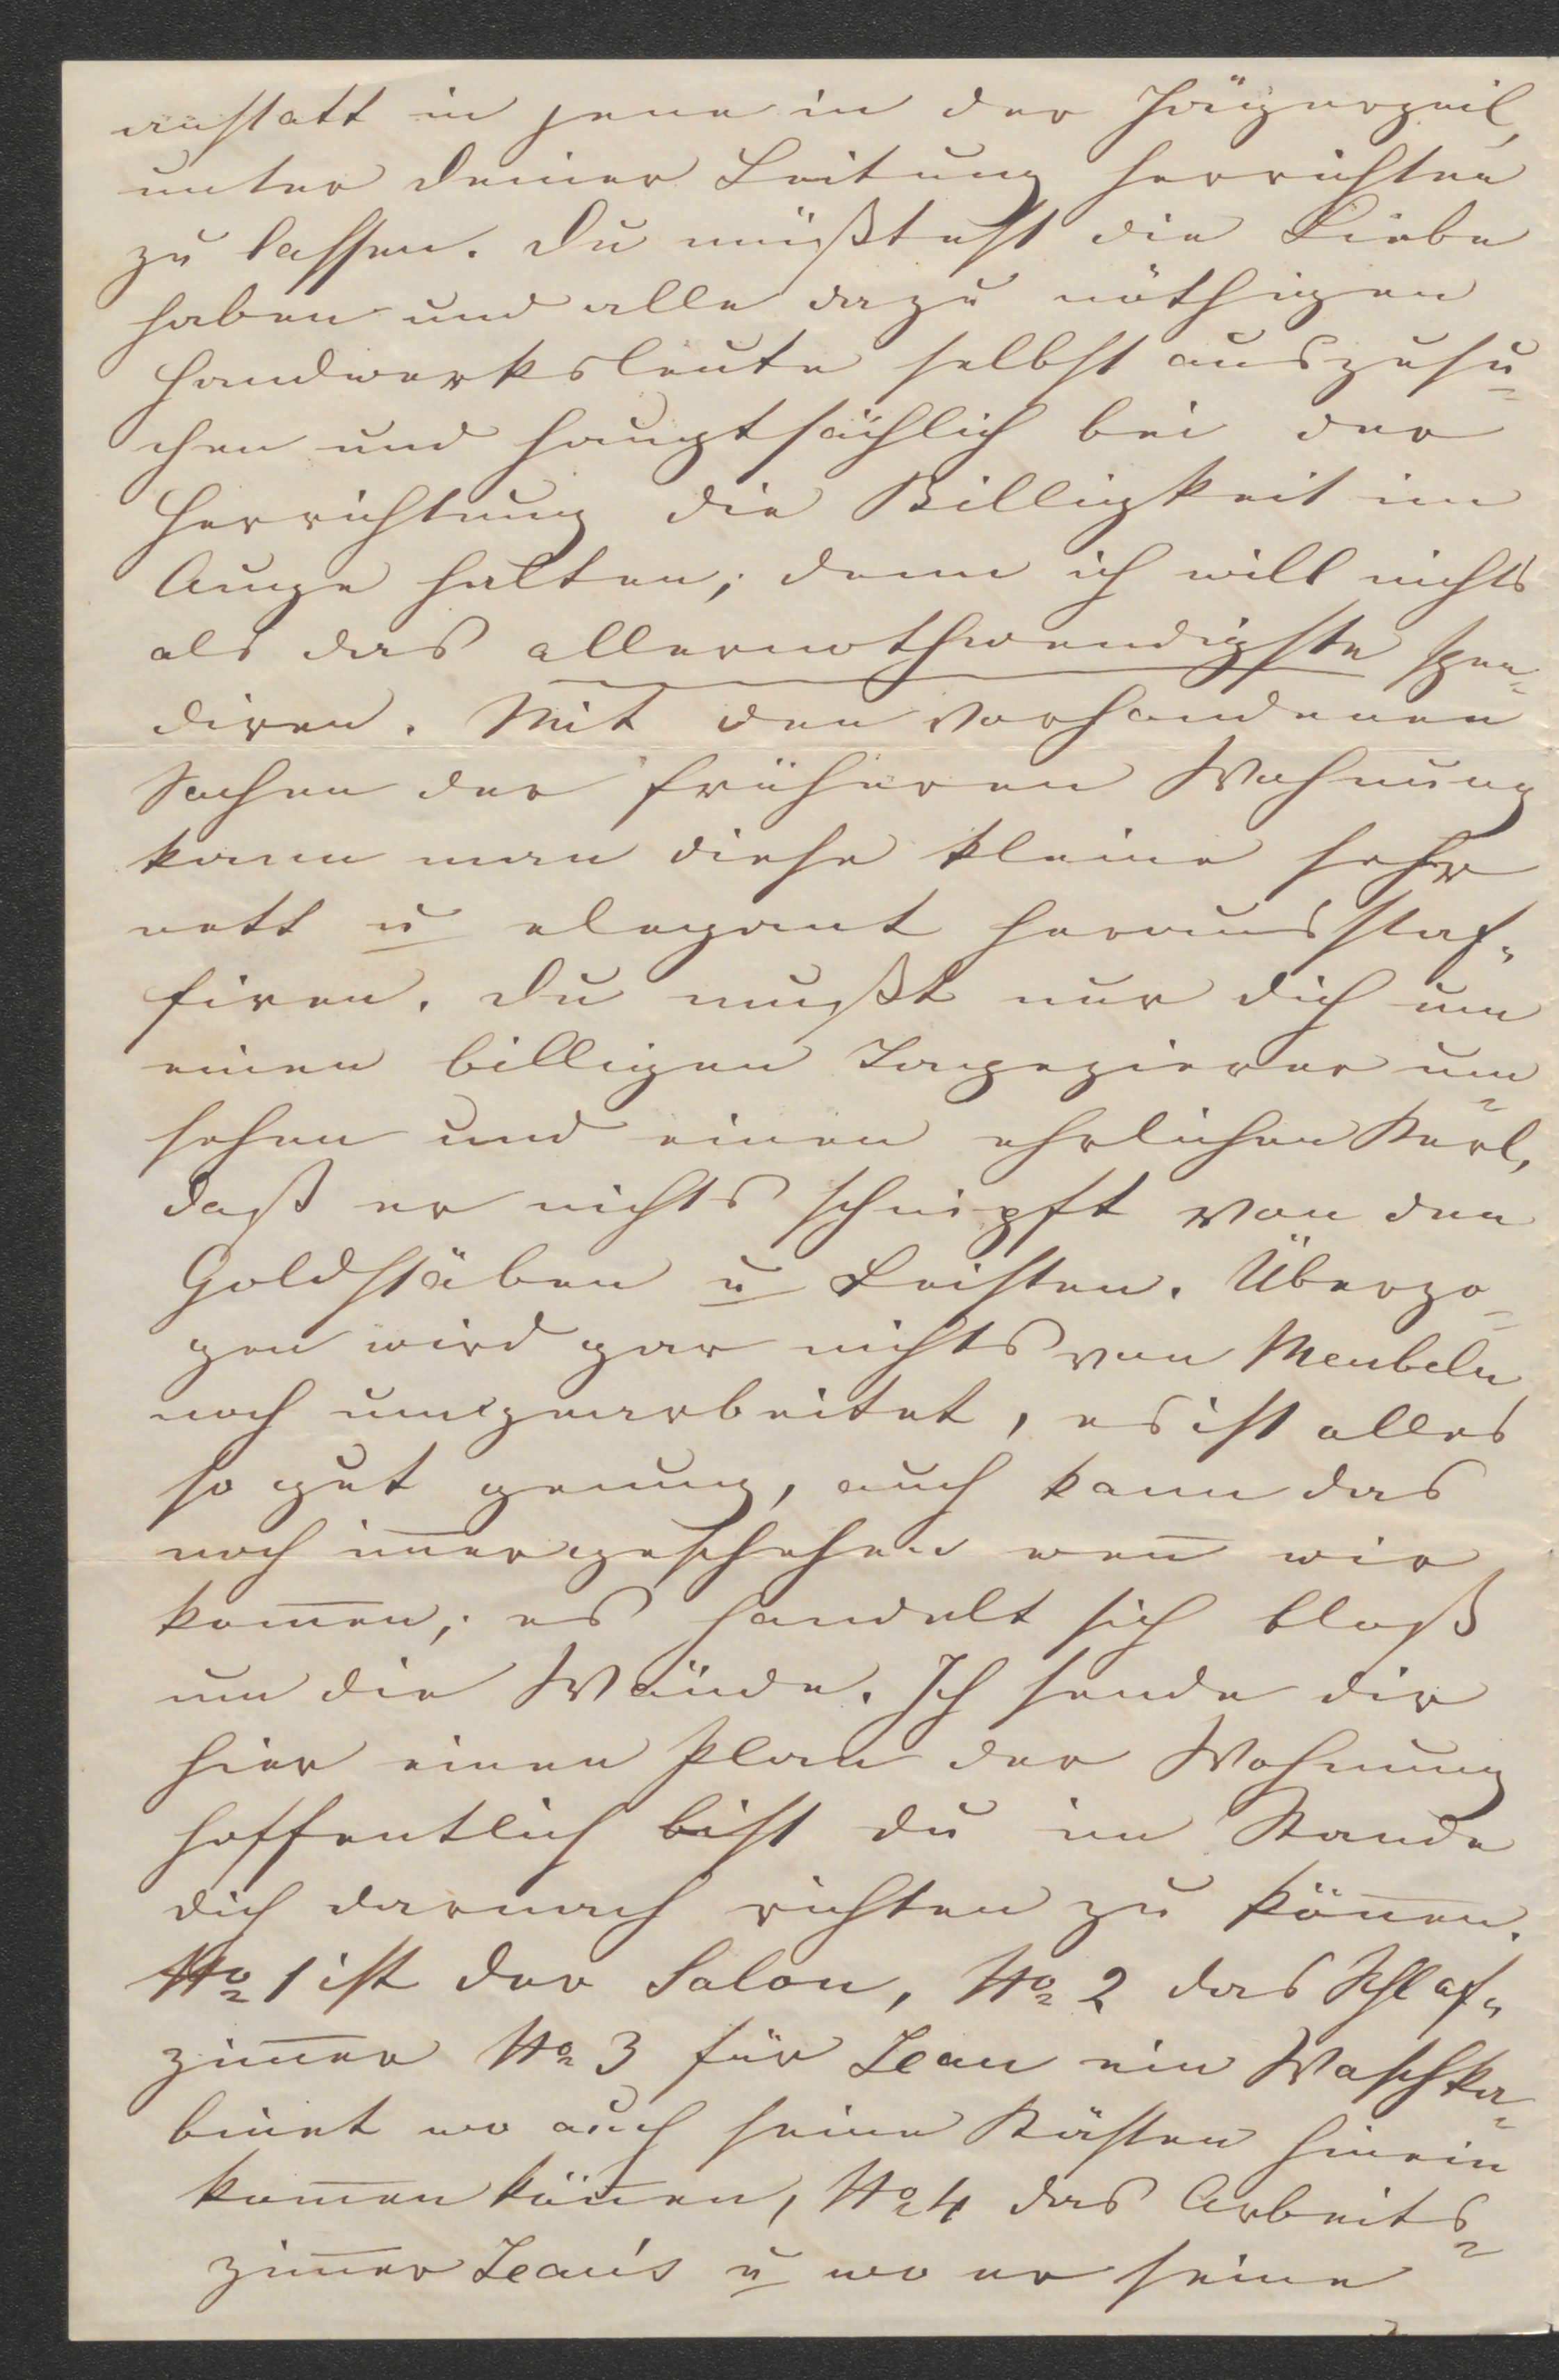 anstatt in jene in der Jägerzeil,
unter deiner Leitung herrichten
zu lassen. Du müßtest die Liebe
haben und alle dazu nöthigen
Handwerksleute selbst auszusu-
chen und hauptsächlich bei der
Herrichtung die Billigkeit im
Auge halten; denn ich will nichts
als das allernothwendigste spen-
diren. Mit den vorhandenen
Sachen der früheren Wohnung
kann man diese kleine sehr
nett u elegant herausstaf-
firen. Du mußt nur dich um
einen billigen Tapezierer um-
sehen und einen ehrlichen Kerl,
daß er nichts schnipft von den
Goldstäben u Leisten. Überzo-
gen wird gar nichts von Meubeln
noch umgearbeitet, es ist alles
so gut genung, auch kann das
noch im̅er geschehen wen̅ wir
kom̅en; es handelt sich bloß
um die Wände. Ich sende dir
hier einen Plan der Wohnung
hoffentlich bist du im Stande
dich darnach richten zu kön̅en.
No 1 ist der Salon, No 2 das Schlaf-
zim̅er No 3 für Jean ein Waschka-
binet wo auch seine Kästen hinein
kom̅en kön̅en, No 4 das Arbeits-
zim̅er Jean's u wo er seine